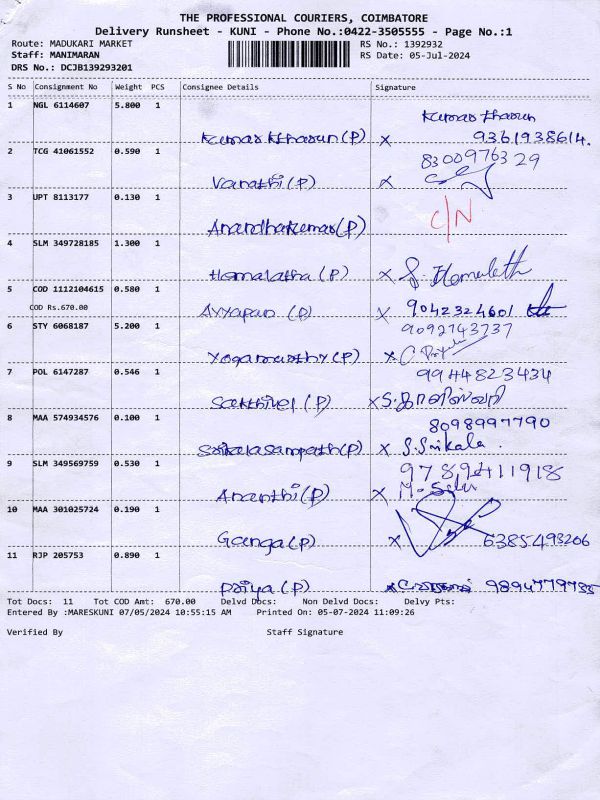 THE PROFESSIONAL COURIERS, COIMBATORE
Delivery Runsheet - KUNI - Phone No.:0422-3505555 - Page No.:1
Route: MADUKARI MARKET RS No.: 1392932
Staff: MANIMARAN RS Date: 05-Jul-2024
DRS No.: DCJB139293201
S No Consignment No Weight PCS Consignee Details Signature
1 NGL 6114607 5.800 1 Kumar Kharun
Kumar Kharun (P) x 9361938614.
2 TCG 41061552 0.590 1 8300976329
Vanathi (P) x
3 UPT 8113177 0.130 1 C/N
Anandhakumar(P)
4 SLM 349728185 1.300 1
Hemalatha (P) x
5 COD 1112104615 0.580 1
COD Rs.670.00
Ayyapan (P) x 9042324601
6 STY 6068187 5.200 1 9092743737
Yogamurthy (P) x
7 POL 6147287 0.546 1 9944823434
Sakthivel (P) x
8 MAA 574934576 0.100 1 8098997790
Srikalasampath(P) x S.Srikala.
9 SLM 349569759 0.530 1 9789411918
Ananthi (P) x
10 MAA 301025724 0.190 1
Ganga (P) x 6385493206
11 RJP 205753 0.890 1
Priya (P) x 9894779785
Tot Docs: 11 Tot COD Amt: 670.00 Delvd Docs: Non Delvd Docs: Delvy Pts:
Entered By :MARESKUNI 07/05/2024 10:55:15 AM Printed On: 05-07-2024 11:09:26
Verified By Staff Signature